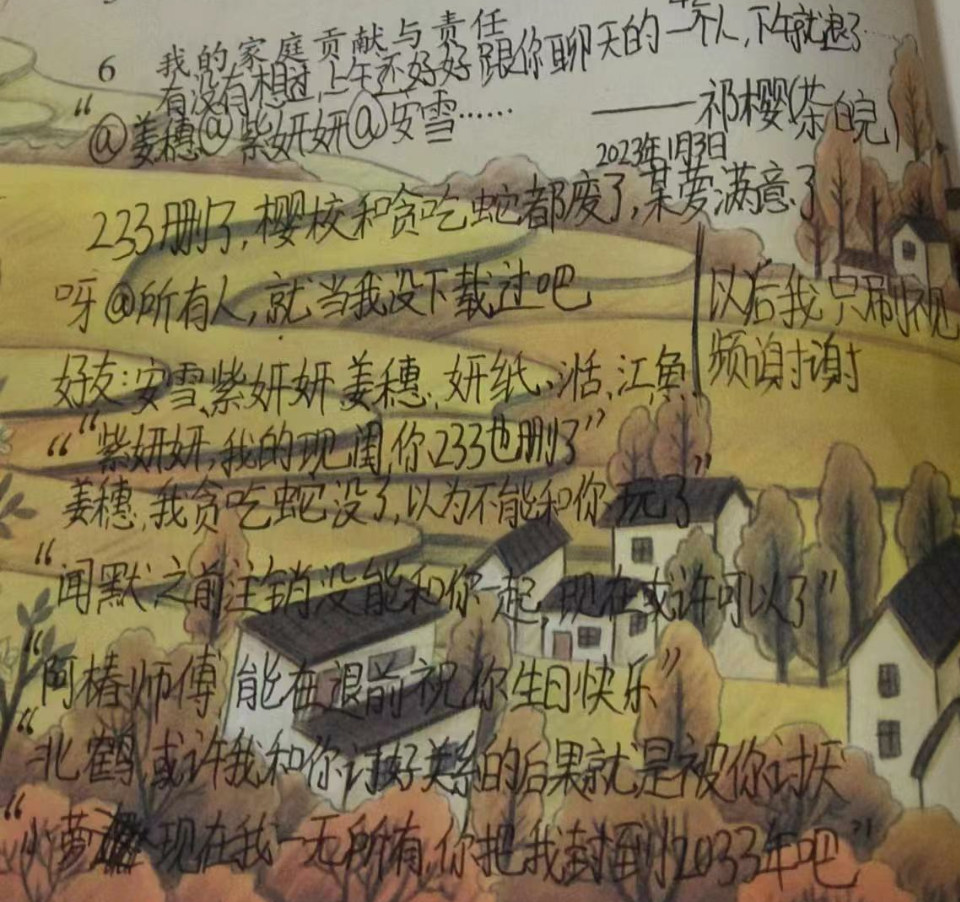 6 我的家庭贡献与责任
有没有想过,上午还好好跟你聊天的一个人,下午就退了
“@姜穗@紫妍妍@安雪……
——祁樱(茶皖)
2023年1月3日
233删了,樱校和贪吃蛇都废了,某萝满意了
呀@所有人,就当我没下载过吧
以后我只刷视
频谢谢
好友:安雪、紫妍妍、姜穗、妍纸、湉、江鱼
“紫妍妍,我的现闺,你233也删了”
“姜穗,我贪吃蛇没了,以为不能和你玩了”
“闻默之前注销没能和你一起,现在或许可以了”
“阿椿师傅能在退前祝你生日快乐”
“北鹤,或许我和你讨好关系的后果就是被你讨厌
“小萝 现在我一无所有,你把我封到2033年吧”